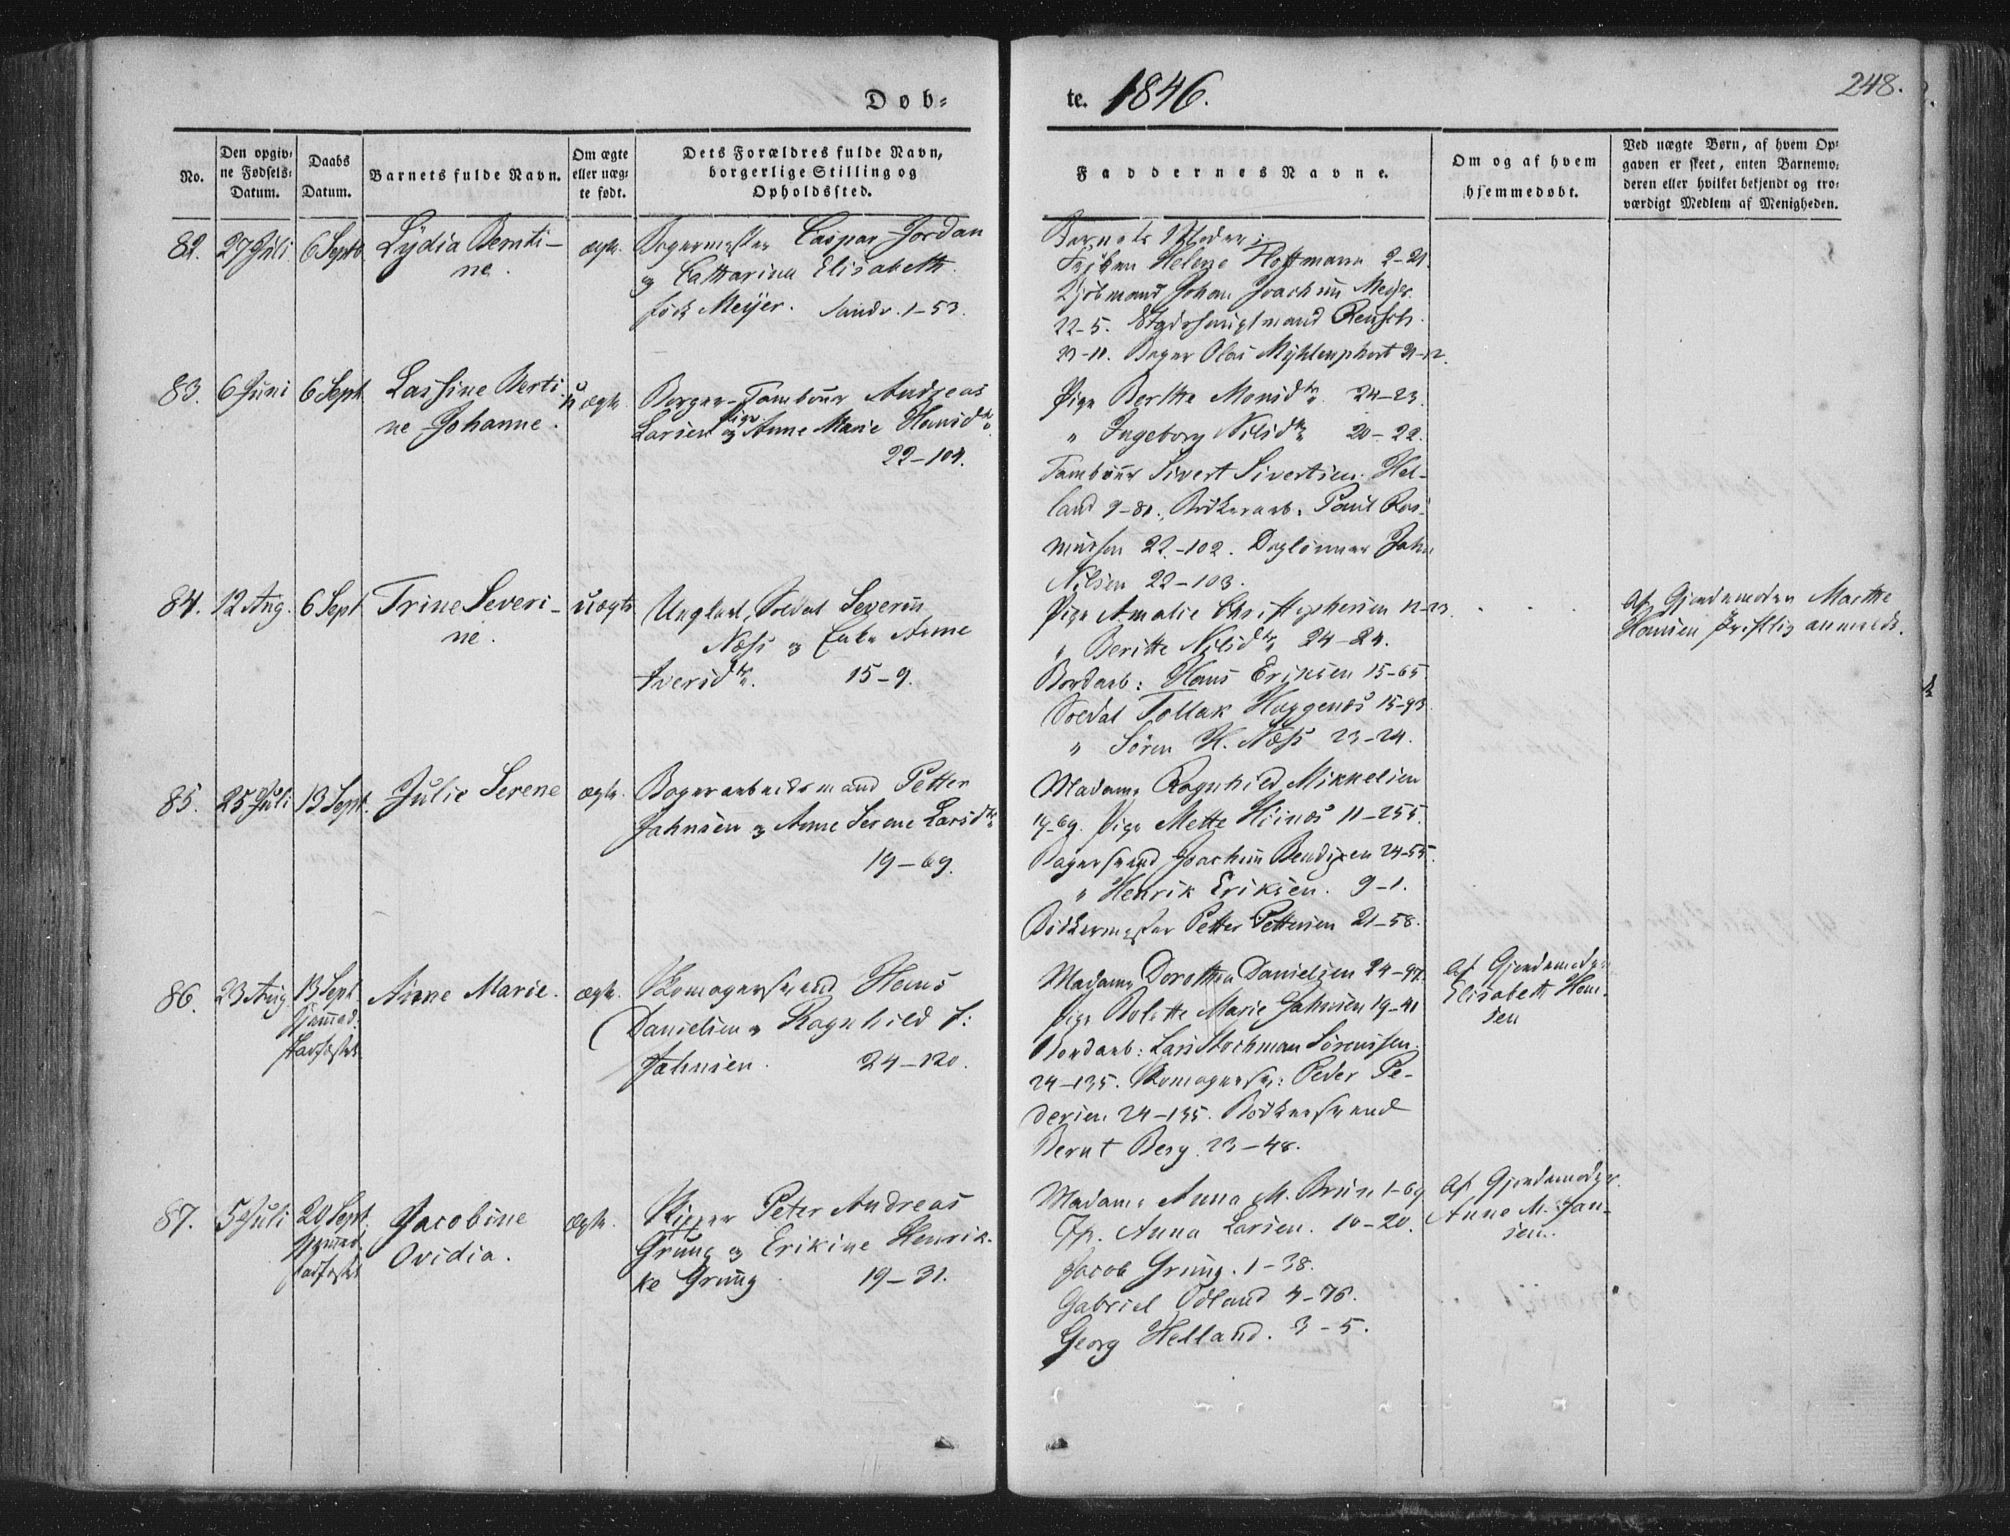 Døb-
te. 1846.
248.
No.
Den opgiv-
ne Fødsels-
Datum.
Daabs
Datum.
Barnets fulde Navn.
Om ægte
eller uæg-
te født.
Dets Forældres fulde Navn,
borgerlige Stilling og
Opholdssted.
Faddernes Navne.
Om og af hvem
hjemmedøbt.
Ved uægte Børn, af hvem Op-
gaven er skeet, enten Barnemo-
deren eller hvilket bekjendt og tro-
værdigt Medlem af Menigheden.
82. 27 Juli 6 Septb Lydia Bernti-
ne.
ægte.
Bagermester Caspar Jordan
og Catharina Elisabeth
født Meyer. 1-53.
Barnets Moder;
Frøken Helene Hoffmann 2-21.
Kjøbmand Johan Joachim Meyer
22-5. Stadshauptmand Reusch
23-11. Bager Olai Mÿhlenphort 21-12.
83. 6 Juni 6 Sept Lassine Berti-
ne Johanne.
uægte
Borger-Tambour Andreas
Larsen og Pige Anne Marie Hansdtr
22-104.
Pige Berthe Monsdtr 24-23.
" Ingeborg Nilsdtr 20-22.
Tambour Sivert Sivertsen Hel-
land 9-81. Bødkerarb. Paul Ras-
mussen 22-102. Daglønner John
Nilsen 22-103.
84. 12 Aug. 6 Sept Trine Severi-
ne.
uægte
Ungkarl, Soldat Severin
Næss og Enke Anne
Iversdtr. 15-9.
Pige Amalie Christophersen 12-23.
" Beritte Nilsdtr 24-24.
Bordarb: Hans Eriksen 15-65
Soldat Tollak Haggenæs 15-93.
" Søren H. Næss 23-24.
Af Gjordemoder Marthe
Hansen skriftlig anmeldt.
85. 25 Juli 13 Sept. Julie Serene
ægte.
Bagerarbeidsmand Petter
Jahnsen og Anne Serene Larsdtr
19-69.
Madame Ragnhild Mikkelsen
19-69. Pige Mette Hiinæs 11-255.
Bagersvend Joachim Bendixen 24-55.
" Henrik Eriksen. 9-1.
Bødkermester Petter Pettersen 21-58.
86. 23 Aug 13 Sept
Anne Marie.
ægte.
Skomagersvend Hans
Danielsen og Ragnhild f:
Jahnsen. 24-120.
Madame Dorothea Danielsen 24-97.
Pige Bolette Marie Jahnsen 19-41
Bordarb: Lars Stochman Sørenssen.
24-135. Skomagersv: Peder Pe-
dersen 24-135. Bødkersvend
Bernt Berg 23-48.
Af Gjordemoder
Elisabeth Han-
sen
87. 5 Juli 20 Sept.
Jacobine
Ovidia.
ægte.
Skipper Peter Andreas
Grung og Erikine Henrik-
ke Grung 19-31.
Madame Anna M. Brun 1-69
Jfr. Anna Larsen. 10-20.
Jacob Grung. 1-38.
Gabriel Odland 4-76.
Georg Helland. 3-5.
Af Gjordemoder
Anne M. Jan-
sen.